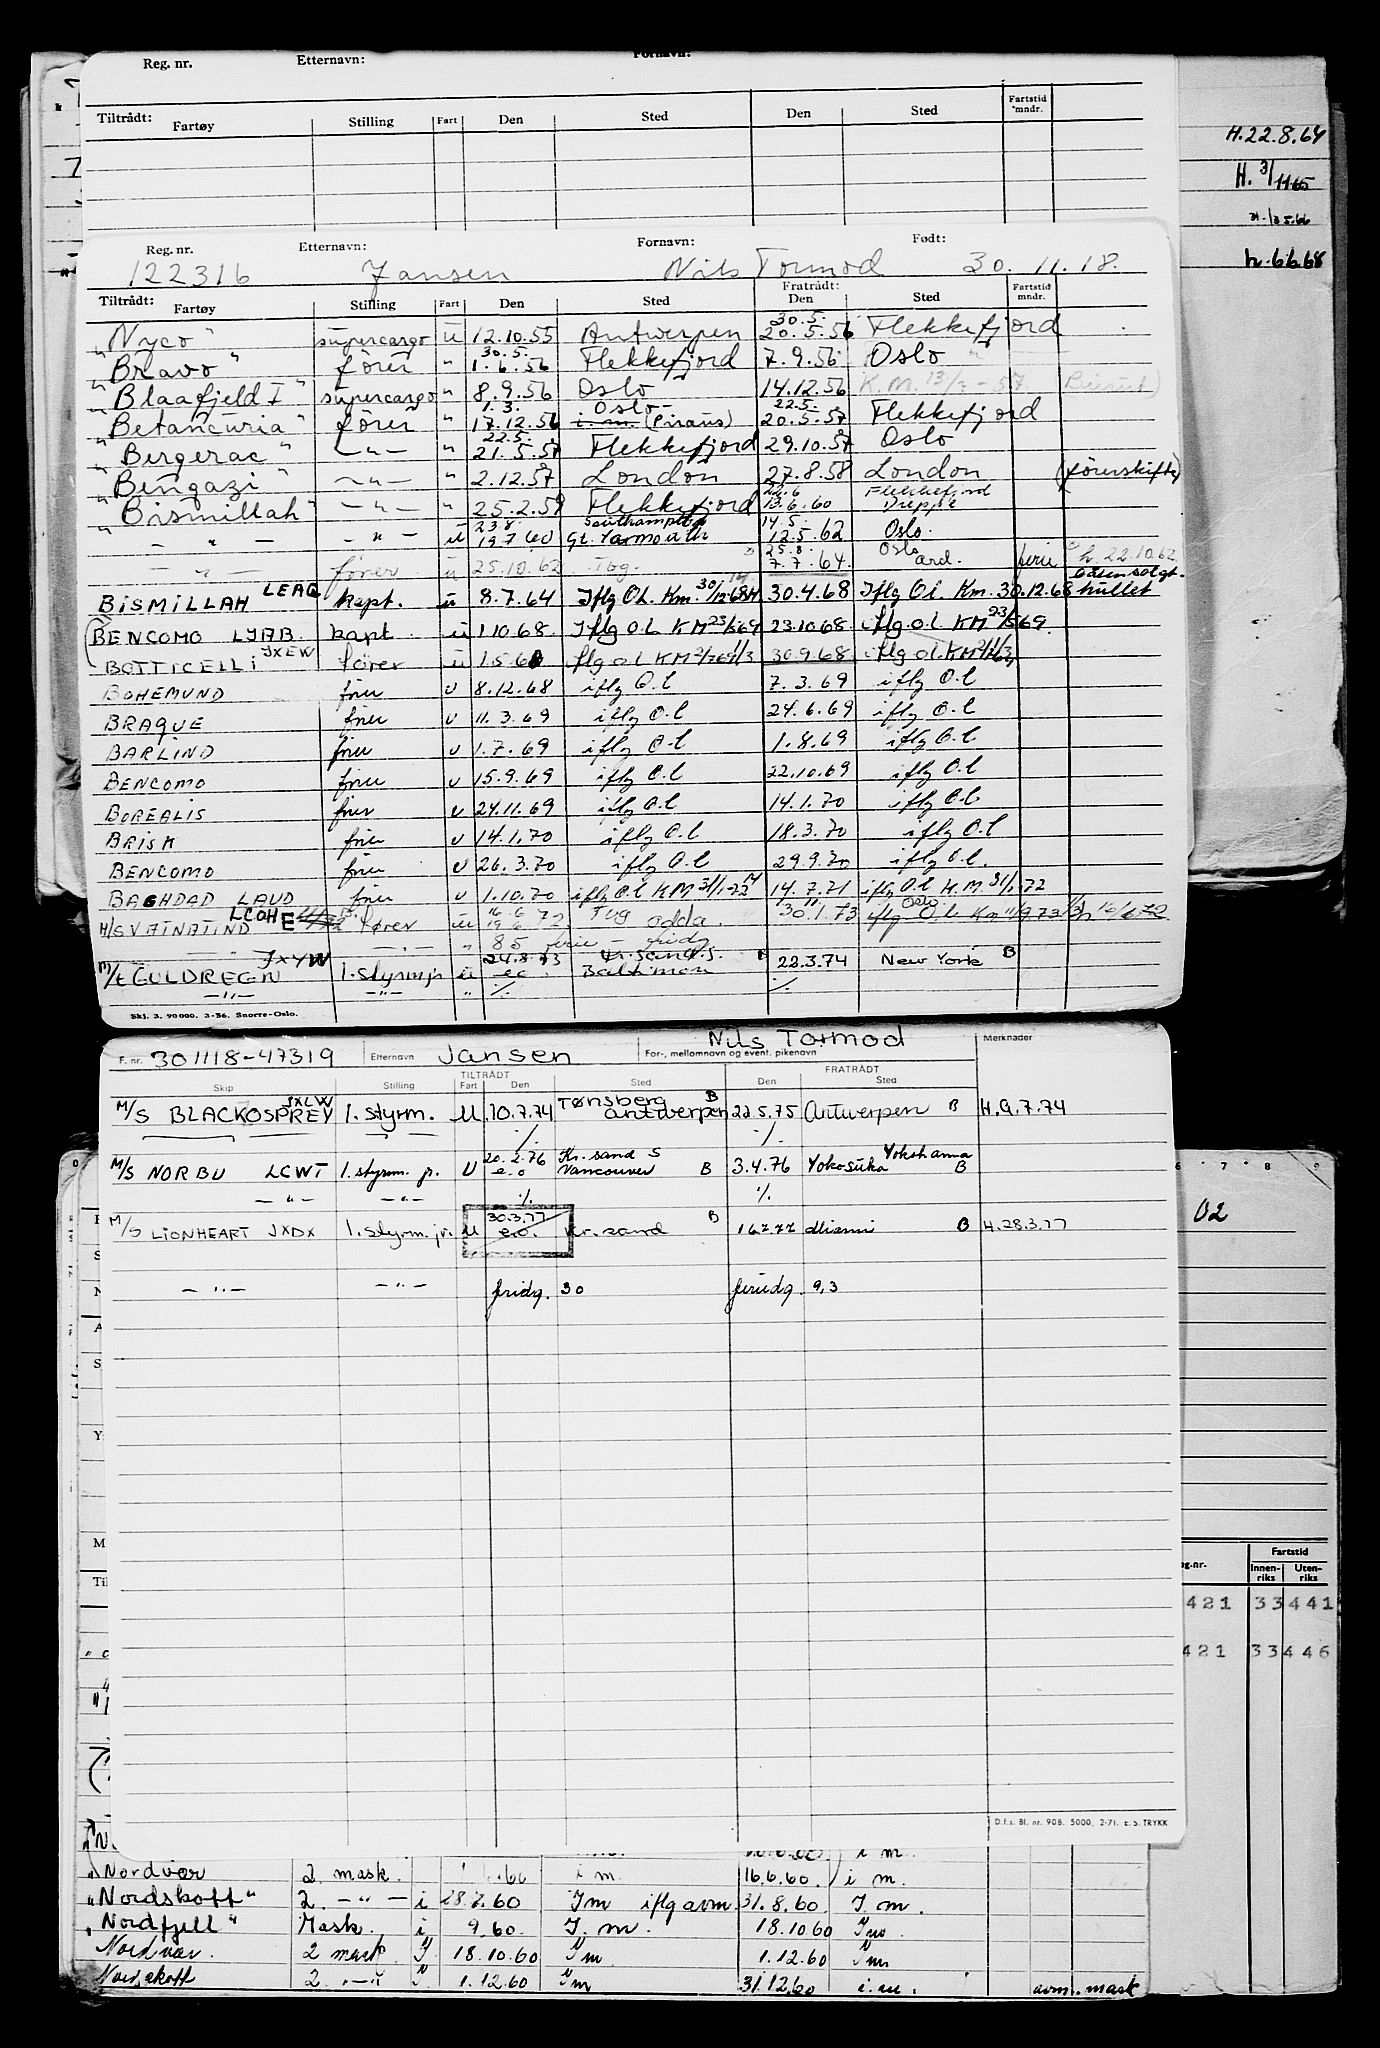 Reg. nr. Etternavn: Fornavn:
Tiltrådt: Fartøy Stilling Fart Den Sted Den Sted Fartstid mndr.
H.22.8.64
H. 3/11 65
h.6.6.68
Reg. nr. Etternavn: Fornavn: Født:
122316 Jansen Nils Tormod 30. 11. 18.
Tiltrådt: Fartøy Stilling Fart Den Sted Fratrådt: Den Sted Fartstid mndr.
30.5.
"Nyco" supercargo u 12.10.55 Antwerpen 20.5.56 Flekkefjord
30.5.
"Bravo" förer " 1.6.56 Flekkefjord 7.9.56 Oslo "
"Blaafjeld I" supercargo " 8.9.56 Oslo 14.12.56 K.M. 13/3-57. Beirut)
1.3. Oslo 22.5.
"Betancuria" förer " 17.12.56 i.m. (Piræus) 20.5.57 Flekkefjord
22.5.
"Bergerac" -"- " 21.5.57 Flekkefjord 29.10.57 Oslo
"Bengazi" -"- " 2.12.57 London 27.8.58 London (förerskifte)
22.6 Flekkefjord
"Bismillah" -"- " 25.2.59 Flekkefjord 13.6.60 Dieppe
23.8. Southampton 14.5.
" - " - -"- u 19.7.60 Gt. Yarmouth 12.5.62 Oslo.
25.8. Oslo
- " - förer u 25.10.62 Tbg. 7.7.64. Ard. ferie h 22.10.62
BISMILLAH LEAQ kapt. u 8.7.64 Iflg O.L. Km. 30/12.68 30.4.68 Iflg O.l. Km. 30.12.68 hullet
BENCOMO LYAB kapt. u 1.10.68. Iflg O.L KM 23/5 69 23.10.68 iflg o.l KM 23/5 69.
BOTTICELLI JXEW förer u 1.5.68 iflg o l KM 30.9.68 iflg o.l. KM
BOHEMUND förer u 8.12.68 iflg O.l 7.3.69 iflg O.l
BRAQUE förer u 11.3.69 iflg O.l 24.6.69 iflg O.l
BARLIND förer u 1.7.69 iflg O.l 1.8.69 iflg O.l.
BENCOMO förer u 15.9.69 iflg O.l 22.10.69 iflg O.l
BOREALIS förer u 24.11.69 iflg O.l 14.1.70 iflg O.l.
BRISK förer u 14.1.70 iflg O.l 18.3.70 iflg O.l
BENCOMO förer u 26.3.70 iflg O.l 29.9.70 iflg O.l.
BAGHDAD LAUD förer u 1.10.70 iflg O.l KM 31/1-72 14.7.71 iflg O.l K.M. 31/1-72
LCOH E 16.6 Oslo
M/S VATNATIND förer u 19.6.72. Tug Odda. 30.1.73 iflg O.l. Km 11/9 73 h 16/6.72
- " - - " - 85 ferie - fridg
JXYW 24.8.73 Kr.sand. S. B
M/T GULDREGN 1. styrm jr u e.o. Baltimore 22.3.74 New York B
- " - - " - " %. %.
Skj. 3. 90 000. 3-56. Snorre-Oslo.
F. nr. 301118-47319 Etternavn Jansen Nils Tormod For-, mellomnavn og event. pikenavn Merknader
TILTRÅDT FRATRÅDT
Skip Stilling Fart Den Sted Den Sted
JXLW Tønsberg B
M/S BLACKOSPREY 1. styrm. U 10.7.74 Antwerpen 22.5.75 Antwerpen B H.9.7.74
%. %.
20.2.76 Kr.sand S Yokohama
M/S NORBU LCWT 1. styrm. jr. U e.o Vancouver B 3.4.76 Yokosuka B
- " - - " - %. %.
30.3.77 B
M/S LIONHEART JXDX 1. styrm. jr. U e.o. Kr.sand 16.7.77 Miami B H.28.3.77
- " - - " - fridg. 30 feriedg. 9,3
6 7 8 9
02
Fartstid
Innen-riks Uten-riks
421 33 441
421 33 446
D.f.s. Bl. nr. 90B. 5000, 2-71. E. S. TRYKK
i m.
"Nordvær 2 mask. .60 i m. 16.6.60. i m.
"Nordskott" 2. - " - i 28.7.60 I m iflg avm. 31.8.60 I. m.
"Nordfjell" Mask. i 9.60. I. m. 18.10.60 I m.
Nordvær. 2 mask I. 18.10.60 I m 1.12.60 I m
Nordskott 2. -"- I. 1.12.60 I m 31.12.60 i.m. avm. mask